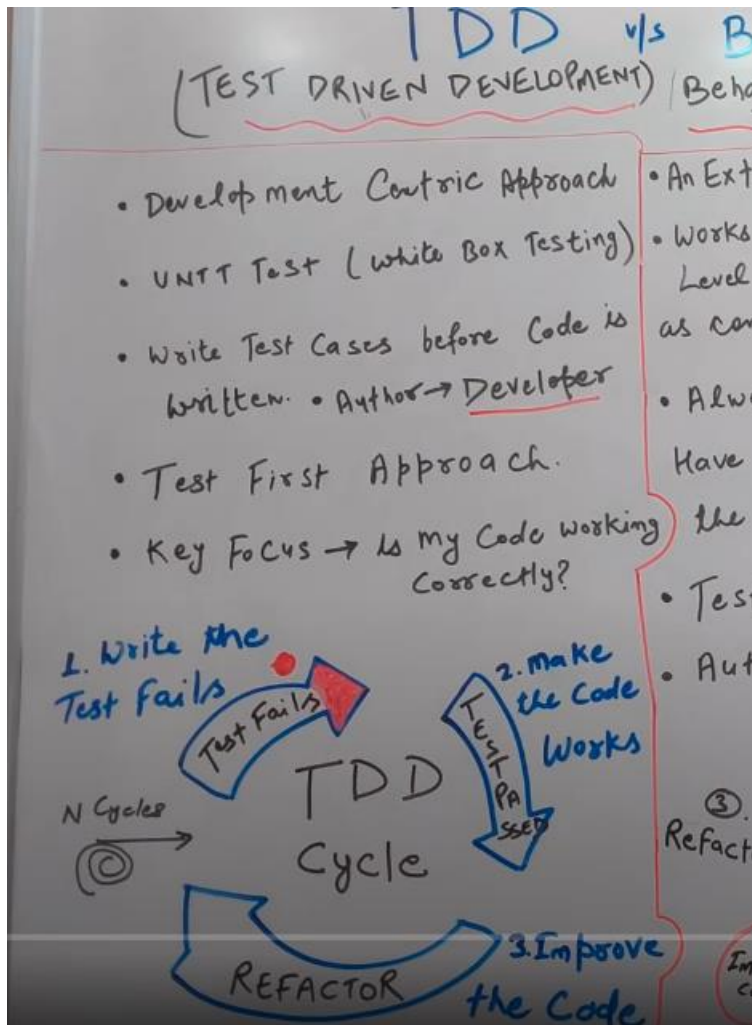 TDD v/s B
(TEST DRIVEN DEVELOPMENT)
• Development Centric Approach
• UNIT Test (White Box Testing)
• Write Test Cases before Code is
written. • Author → Developer
• Test First Approach.
• Key Focus → is my Code working
correctly?
1. Write the
Test Fails
Test Fails
2. Make
the Code
Works
TEST PASSED
TDD
Cycle
N Cycles
REFACTOR
3. Improve
the Code
Beha
• An Ext
• Works
Level
as com
• Alwa
Have
the
• Tes
• Aut
③.
Refact
Im
c